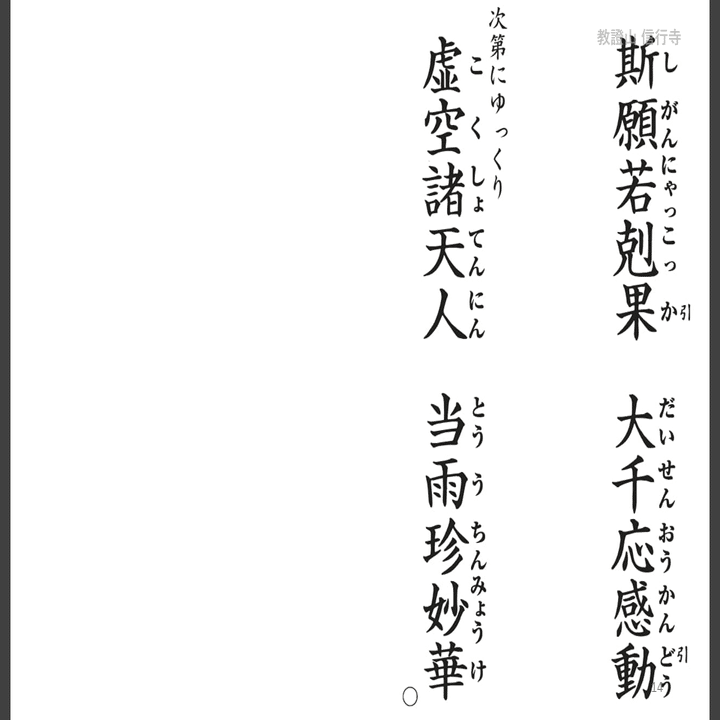 教證山 信行寺
斯願若剋果 大千応感動
し がん にゃっ こっ か引 だい せん おう かん どう引
次第にゆっくり
虚空諸天人 当雨珍妙華
こ くう しょ てん にん とう う ちん みょう け
○
14